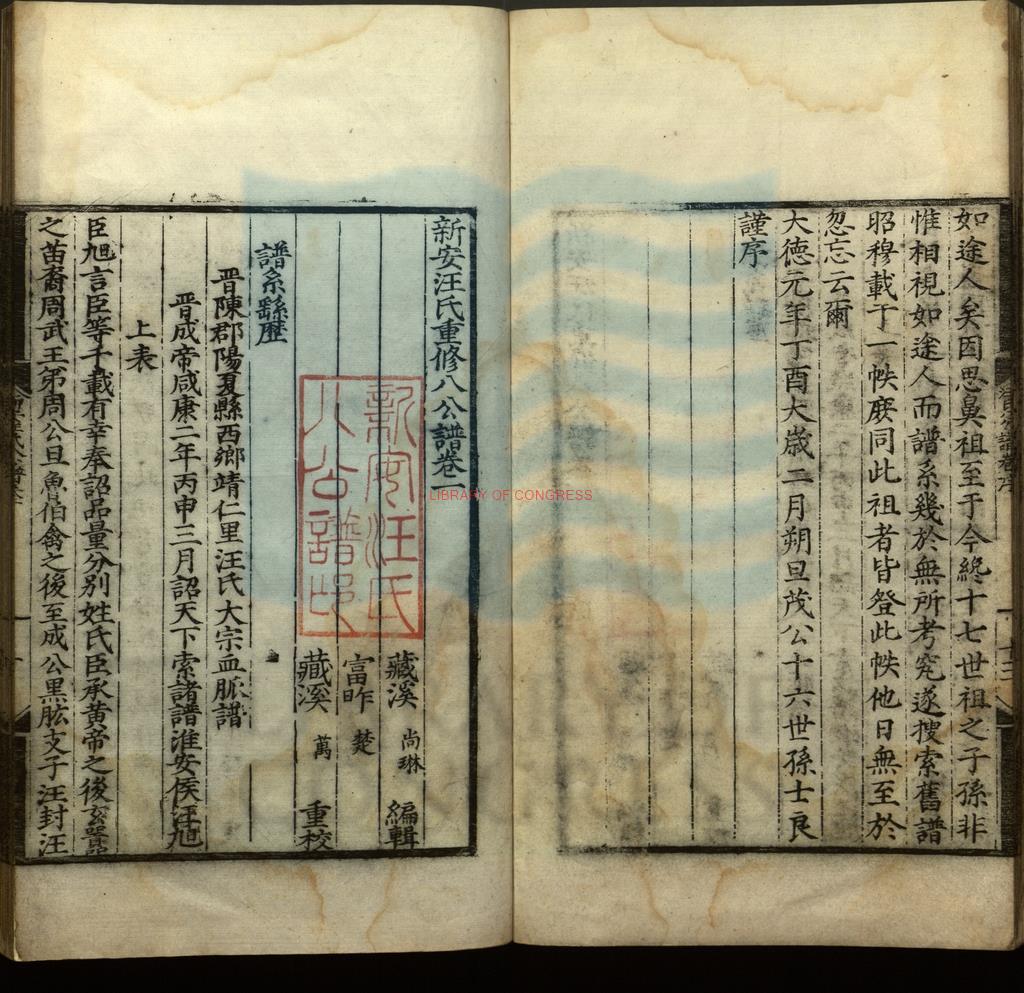 如途人矣因思鼻祖至于今終十七世祖之子孫非
惟相視如途人而譜系幾於無所考究遂搜索舊譜
昭穆載于一帙庶同此祖者皆登此帙他日無至於
忽忘云爾
大德元年丁酉大歲二月朔旦茂公十六世孫士良
謹序
新安汪氏重修八公譜卷一
藏溪 尚琳 編輯
富昨 楚
藏溪 萬 重校
新安汪氏
八公譜印
譜系繇歷
晋陳郡陽夏縣西鄉靖仁里汪氏大宗血脈譜
晋成帝咸康二年丙申三月詔天下索諸譜淮安侯汪旭
上表
臣旭言臣等千載有幸奉詔品量分别姓氏臣承黄帝之後玄囂
之苗裔周武王弟周公旦魯伯禽之後至成公黑肱支子汪封汪
LIBRARY OF CONGRESS